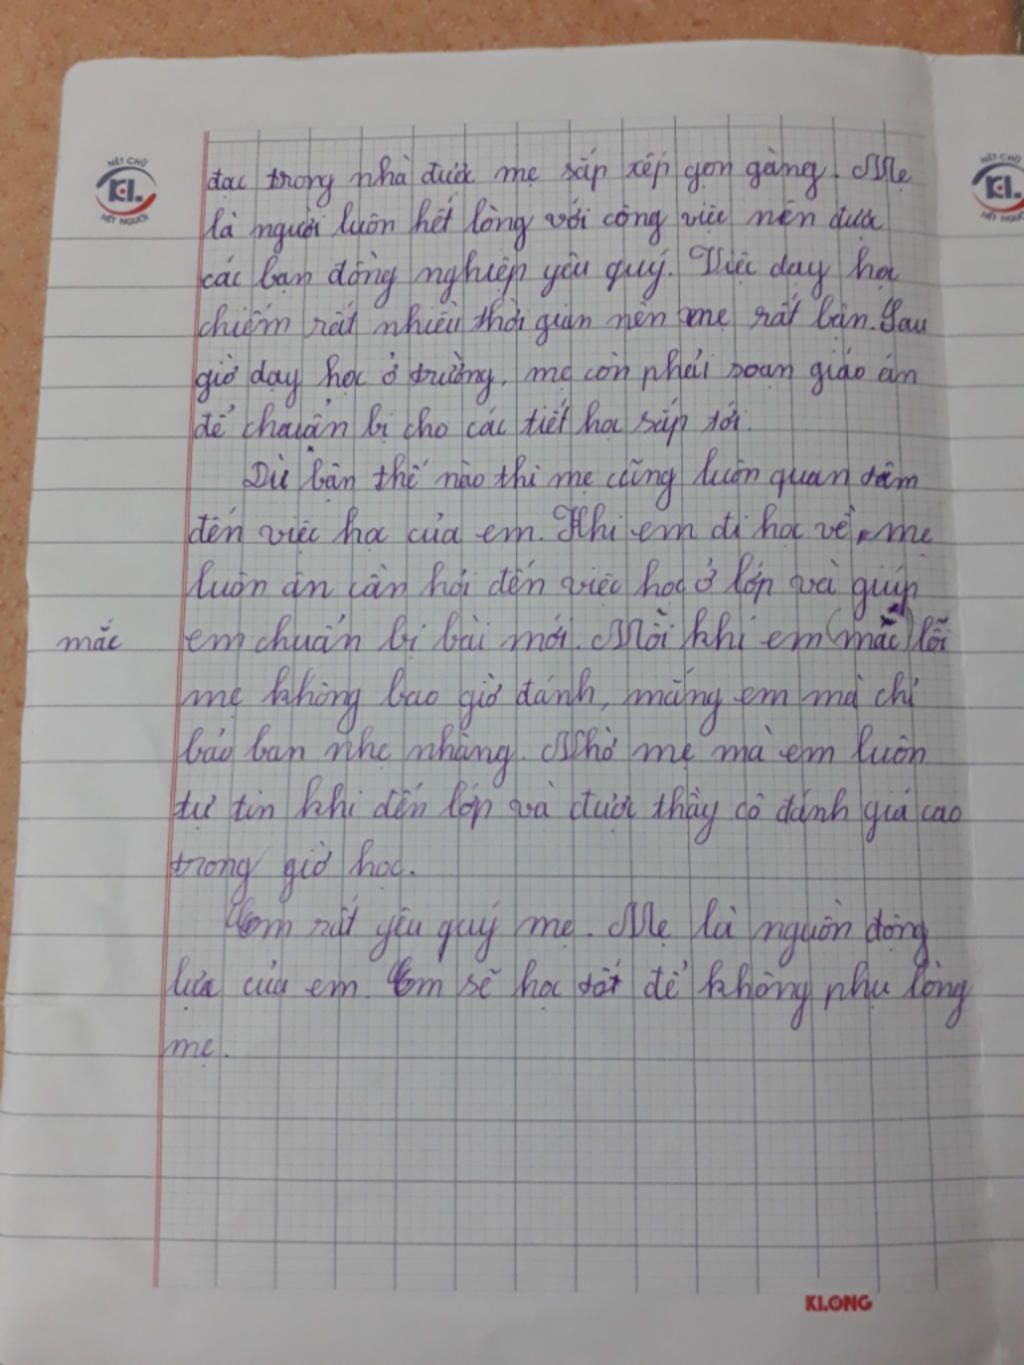 NÉT CHỮ
KL
NẾT NGƯỜI
NÉT CHỮ
KL
NẾT NGƯỜI
đạc trong nhà được mẹ sắp xếp gọn gàng. Mẹ
là người luôn hết lòng với công việc nên được
các bạn đồng nghiệp yêu quý. Việc dạy học
chiếm rất nhiều thời gian nên mẹ rất bận. Sau
giờ dạy học ở trường, mẹ còn phải soạn giáo án
để chuẩn bị cho các tiết học sắp tới.
Dù bận thế nào thì mẹ cũng luôn quan tâm
đến việc học của em. Khi em đi học về, mẹ
luôn ân cần hỏi đến việc học ở lớp và giúp
mắc em chuẩn bị bài mới. Mỗi khi em (mắc) lỗi
mẹ không bao giờ đánh, mắng em mà chỉ
bảo ban nhẹ nhàng. Nhờ mẹ mà em luôn
tự tin khi đến lớp và được thầy cô đánh giá cao
trong giờ học.
Em rất yêu quý mẹ. Mẹ là nguồn động
lực của em. Em sẽ học tốt để không phụ lòng
mẹ.
KLONG